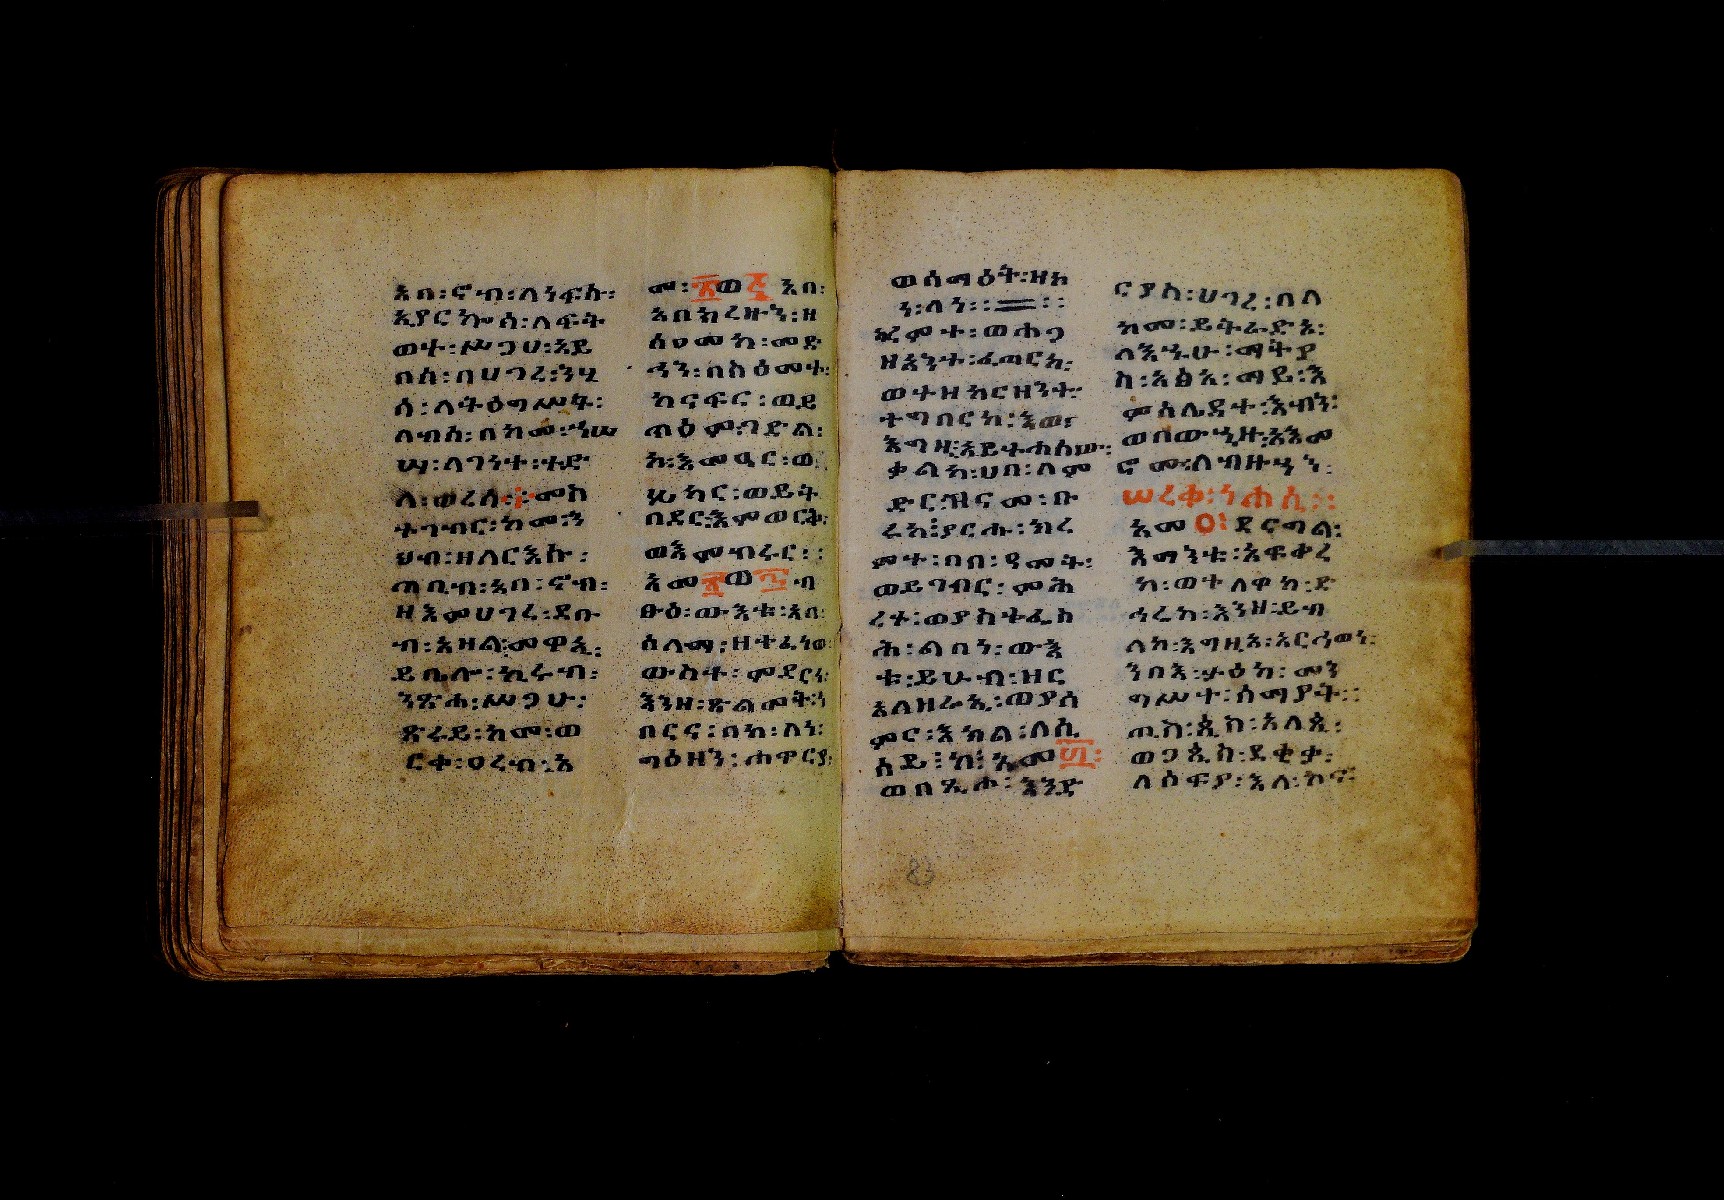 አበ፡ኖብ፡ለነፍሱ፡
ኢያርኰሰ፡ለፍት
ወት፡ሥጋሁ፡አይ
በስ፡በሀገረ፡ንሂ
ሰ፡ለትዕግሥት፡
ለብስ፡በከመ፡ኀሠ
ሣ፡ለገነት፡ተድ
ላ፡ወረሰ፡መከ
ተገብር፡ከመ፡ን
ህብ፡ዘለርእሱ፡
ጠቢብ፡አበ፡ኖብ፡
ዘእምሀገረ፡ደቡ
ብ፡አዘል፡መዋኢ፡
ይቤሎ፡ኪሩብ፡
ንጽሐ፡ሥጋሁ፡
ጽሩይ፡ከመ፡ወ
ርቀ፡ዐረብ፡እ
አበ፡
አበክረዙን፡ዘ
ሰየመከ፡መድ
ኅን፡በስዕመት፡
ከናፍር፡ወይ
ጥዕም፡ገድል፡
ኪ፡እመዓር፡ወ
ሦከር፡ወይት
በደር፡እምወርቅ፡
ወእምብሩር፡
አመ ፳ወ ብ
ፁዕ፡ውእቱ፡አበ፡
ሰላማ፡ዘተፈነወ
ውስተ፡ምድር፡
እንዘ፡ጽልመት፡
በርና፡በከ፡ለነ፡
ግዕዘን፡ሐዋርያ፡
ወሰማዕት፡ዘከ
ን፡ለን፡
ኂሩት፡ወሐጋ
ዘእንተ፡ፈጣርከ፡
ወተዘከርዘንተ፡
ተግበርከ፡እወ
እግዚ፡አይተሐሰው፡
ቃልከ፡ሀበ፡ለም
ድር፡ዝናመ፡ቡ
ራኬ፡ያርሑ፡ክረ
መተ፡በበ፡ዓመት፡
ወይገብር፡ምሕ
ረተ፡ወያስተፌስ
ሕ፡ልበነ፡ውእ
ቱ፡ይሁብ፡ዝር
አለዘራኢ፡ወያሰ
ምር፡እክል፡ለሲ
ሳይ፡ አመ
ወበጺሐ፡እንድ
ርያስ፡ሀገረ፡በላ
ከመ፡ይትራድኦ፡
ለእኁሁ፡ማትያ
ስ፡አፅአ፡ማይ፡እ
ምሰሌዳት፡እብን፡
ወበውኂዙ፡አእመ
ሮመ፡ለብዙኃን፡
ሠረቀ፡ነሐሲ፡
አመ፩፡ደርግል፡
እማንቱ፡አፍቀረ
ኪ፡ወተለዋኪ፡ድ
ኅሬኪ፡እንዘ፡ይብ
ላኪ፡እግዚአ፡አርኅወነ፡
ንበእ፡ታዕካ፡መን
ግሥተ፡ሰማያት፡
ጢስ፡ጴስ፡አላጴ፡
ወጋጴስ፡ደቂቃ፡
ለሶፍያ፡እለ፡ኮና፡